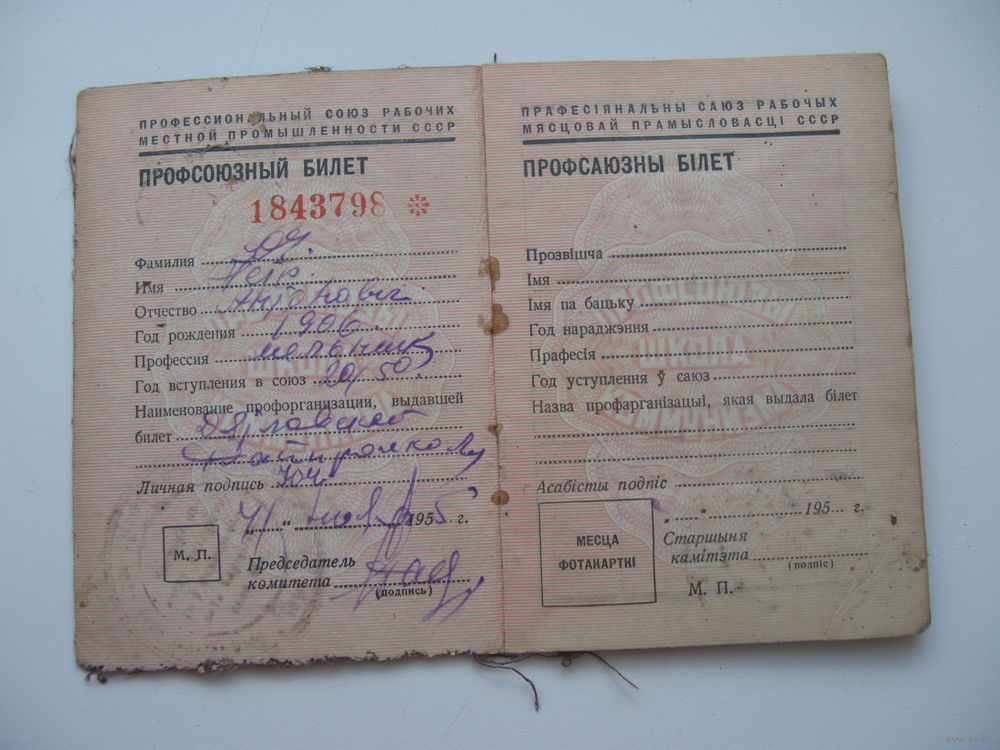 ПРОФЕССИОНАЛЬНЫЙ СОЮЗ РАБОЧИХ
МЕСТНОЙ ПРОМЫШЛЕННОСТИ СССР
ПРОФСОЮЗНЫЙ БИЛЕТ
1843798
Фамилия
Имя Петр.
Отчество Антонович
Год рождения 1906.
Профессия мельник
Год вступления в союз 20/50.
Наименование профорганизации, выдавшей
билет Дятловский
Личная подпись
1955 г.
М. П.
Председатель
комитета
(подпись)
ПРАФЕСІЯНАЛЬНЫ САЮЗ РАБОЧЫХ
МЯСЦОВАЙ ПРАМЫСЛОВАСЦІ СССР
ПРОФСАЮЗНЫ БІЛЕТ
Прозвішча
Імя
Імя па бацьку
Год нараджэння
Прафесія
Год уступлення ў саюз
Назва профарганізацыі, якая выдала білет
Асабісты подпіс
„ “ 195 г.
МЕСЦА
ФОТАКАРТКІ
Старшыня
камітэта
(подпіс)
М. П.